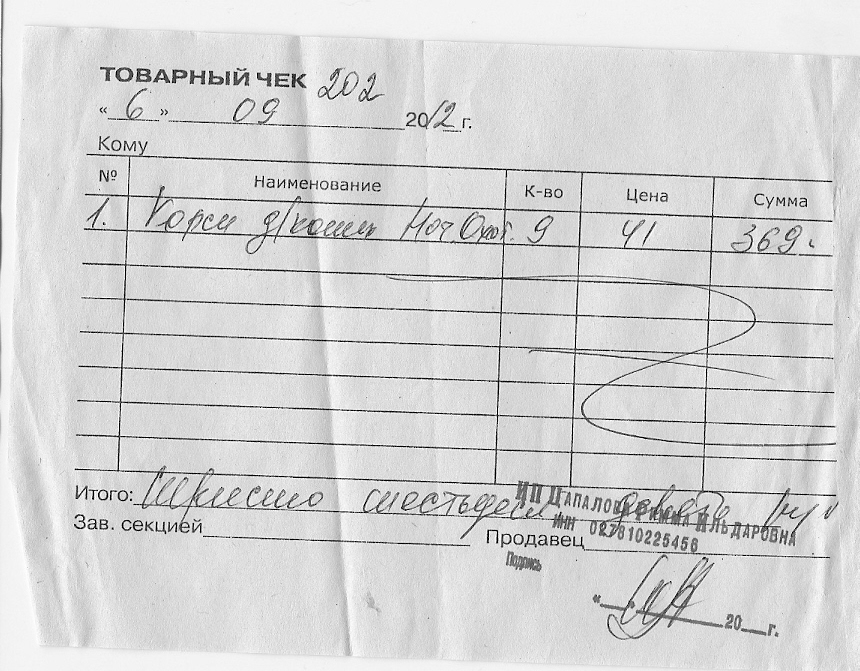 ТОВАРНЫЙ ЧЕК 202
« 6 » 09 2012 г.
Кому
№ Наименование К-во Цена Сумма
1. Корм д/кошек Ноч.Охот. 9 41 369
Итого: Триста шестьдесят девять руб
Зав. секцией Продавец
ИП ЦАПАЛОВА РИММА ИЛЬДАРОВНА
ИНН 027810225456
Подпись
« » 20 г.